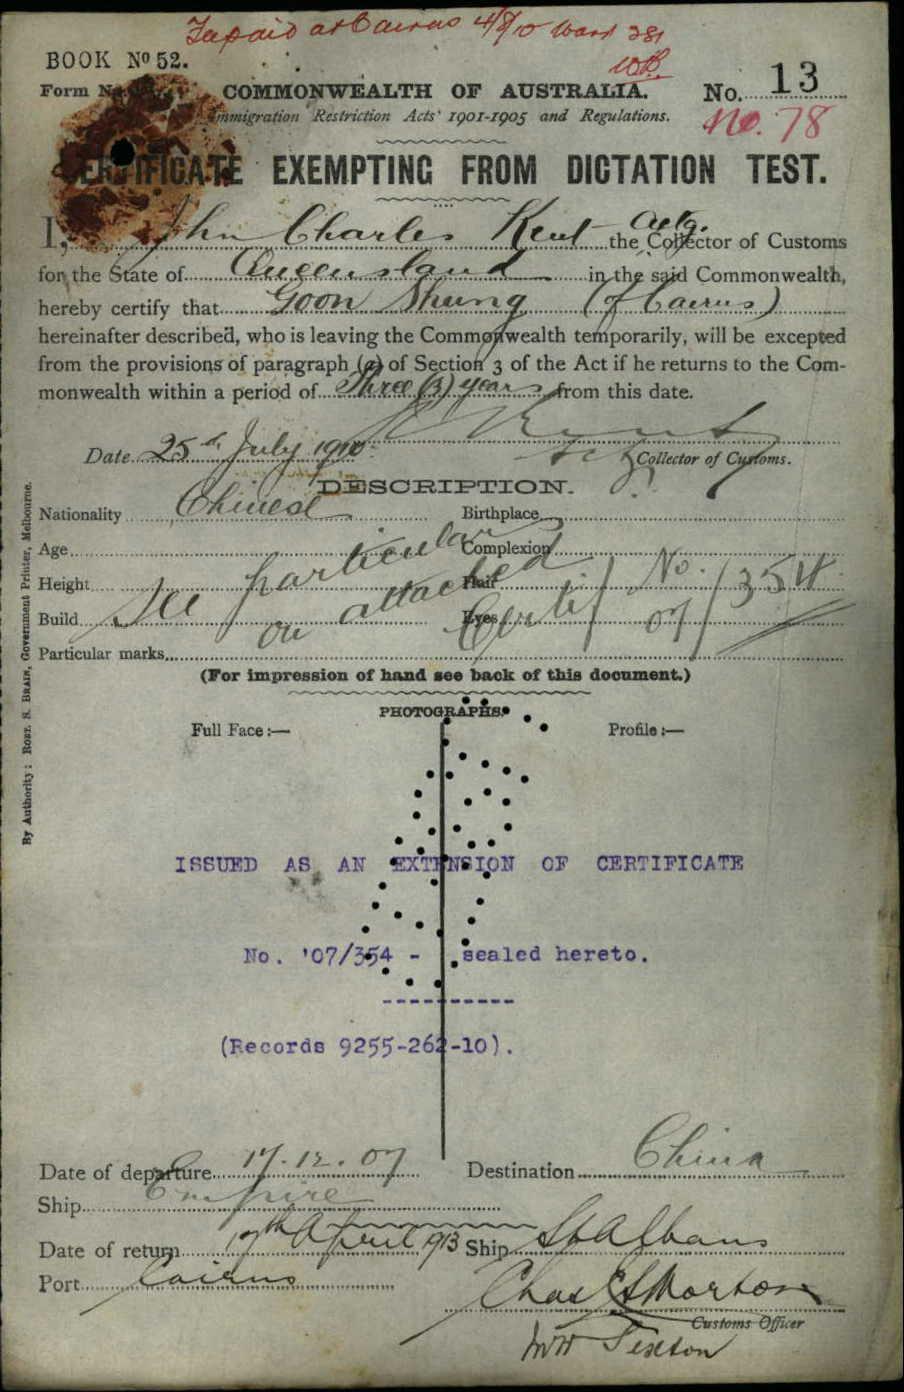 at Cairns 4/8/10
BOOK No 52.
Form No
COMMONWEALTH OF AUSTRALIA.
No. 13
Immigration Restriction Acts' 1901-1905 and Regulations.
No. 78
CERTIFICATE EXEMPTING FROM DICTATION TEST.
I, John Charles Kent Actg. the Collector of Customs
for the State of Queensland in the said Commonwealth,
hereby certify that Goon Shung (of Cairns)
hereinafter described, who is leaving the Commonwealth temporarily, will be excepted
from the provisions of paragraph (a) of Section 3 of the Act if he returns to the Com-
monwealth within a period of Three (3) years from this date.
Kent
Date 25th July 1910
Actg Collector of Customs.
DESCRIPTION.
Nationality Chinese Birthplace
Age Complexion
Height Hair
Build Eyes
See particulars
on attached Certif No. 07/354
Particular marks
(For impression of hand see back of this document.)
PHOTOGRAPHS.
Full Face :— Profile :—
ISSUED AS AN EXTENSION OF CERTIFICATE
No. '07/354 - sealed hereto.
(Records 9255-262-10).
Date of departure 17.12.07 Destination China
Ship Empire
Date of return 17th April 1913 Ship St Albans
Port Cairns
Chas Morton
Customs Officer
Sexton
By Authority : ROBT. S. BRAIN, Government Printer, Melbourne.